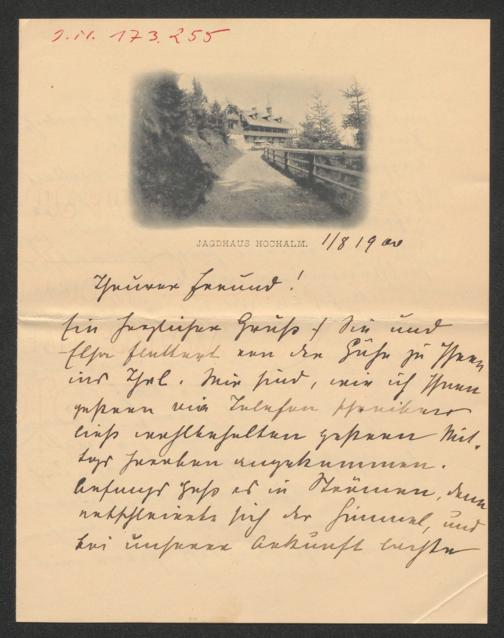 I.N. 173.255
JAGDHAUS HOCHALM. 1/8 1900
Theurer Freund!
Ein herzlicher Gruß f Sie und
Elsa flattert von der Höhe zu Ihnen
ins Thal. Wir sind, wie ich Ihnen
gestern via Telefon
ließ wohlbehalten gestern Mit-
tags heroben angekommen.
Anfangs goß es in Strömen, dann
entschleierte sich der Himmel, und
bei unserer Ankunft lachte